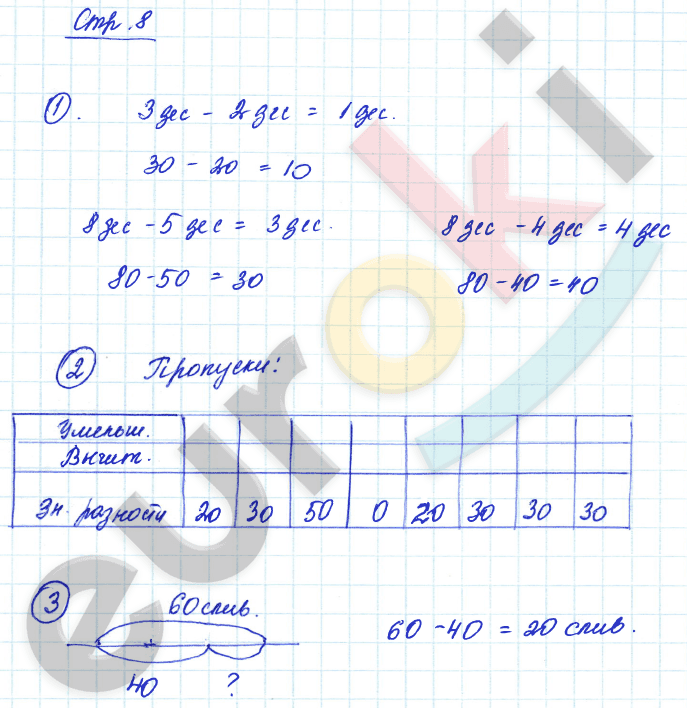 Стр. 8
1. 3 дес - 2 дес = 1 дес.
30 - 20 = 10
8 дес - 5 дес = 3 дес. 8 дес - 4 дес = 4 дес
80 - 50 = 30 80 - 40 = 40
2 Пропуски:
Уменьш.
Вычит.
Зн. разности 20 30 50 0 20 30 30 30
3 60 слив.
60 - 40 = 20 слив.
40 ?
euroki